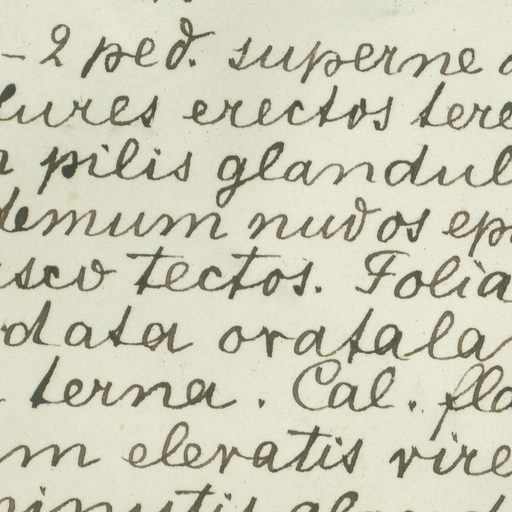 -2 ped. superne
lures erectos tere
pilis glandul
demum nudos ep
isco tectos. Folia
data ovata la
terna. Cal. fla
m elevatis vire
minutis gland